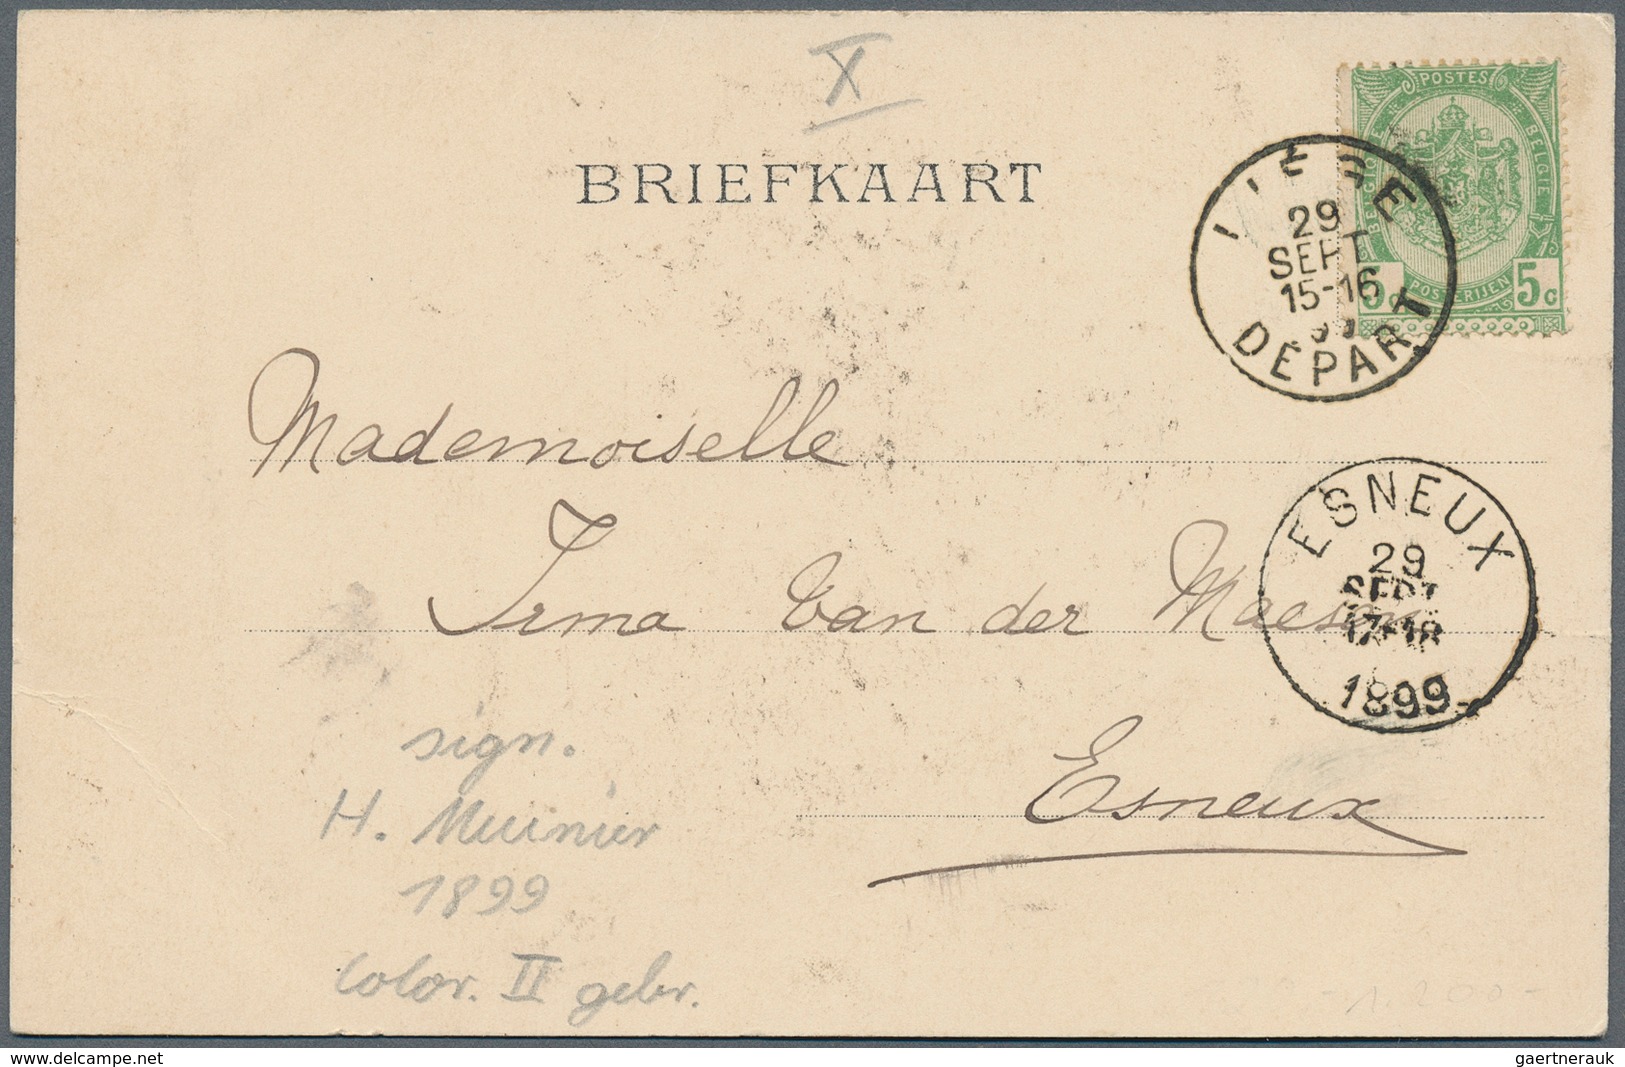 X
BRIEFKAART
POSTES
BELGIQUE BELGIE
POSTERIJEN
5c 5c
LIEGE
29
SEPT
15-16
99
DEPART
Mademoiselle
Irma Van der Maesen
Esneux
ESNEUX
29
SEPT
17-18
1899
sign.
H. Meunier
1899
color. II gebr.
1.200-
www.delcampe.net
gaertnerauk